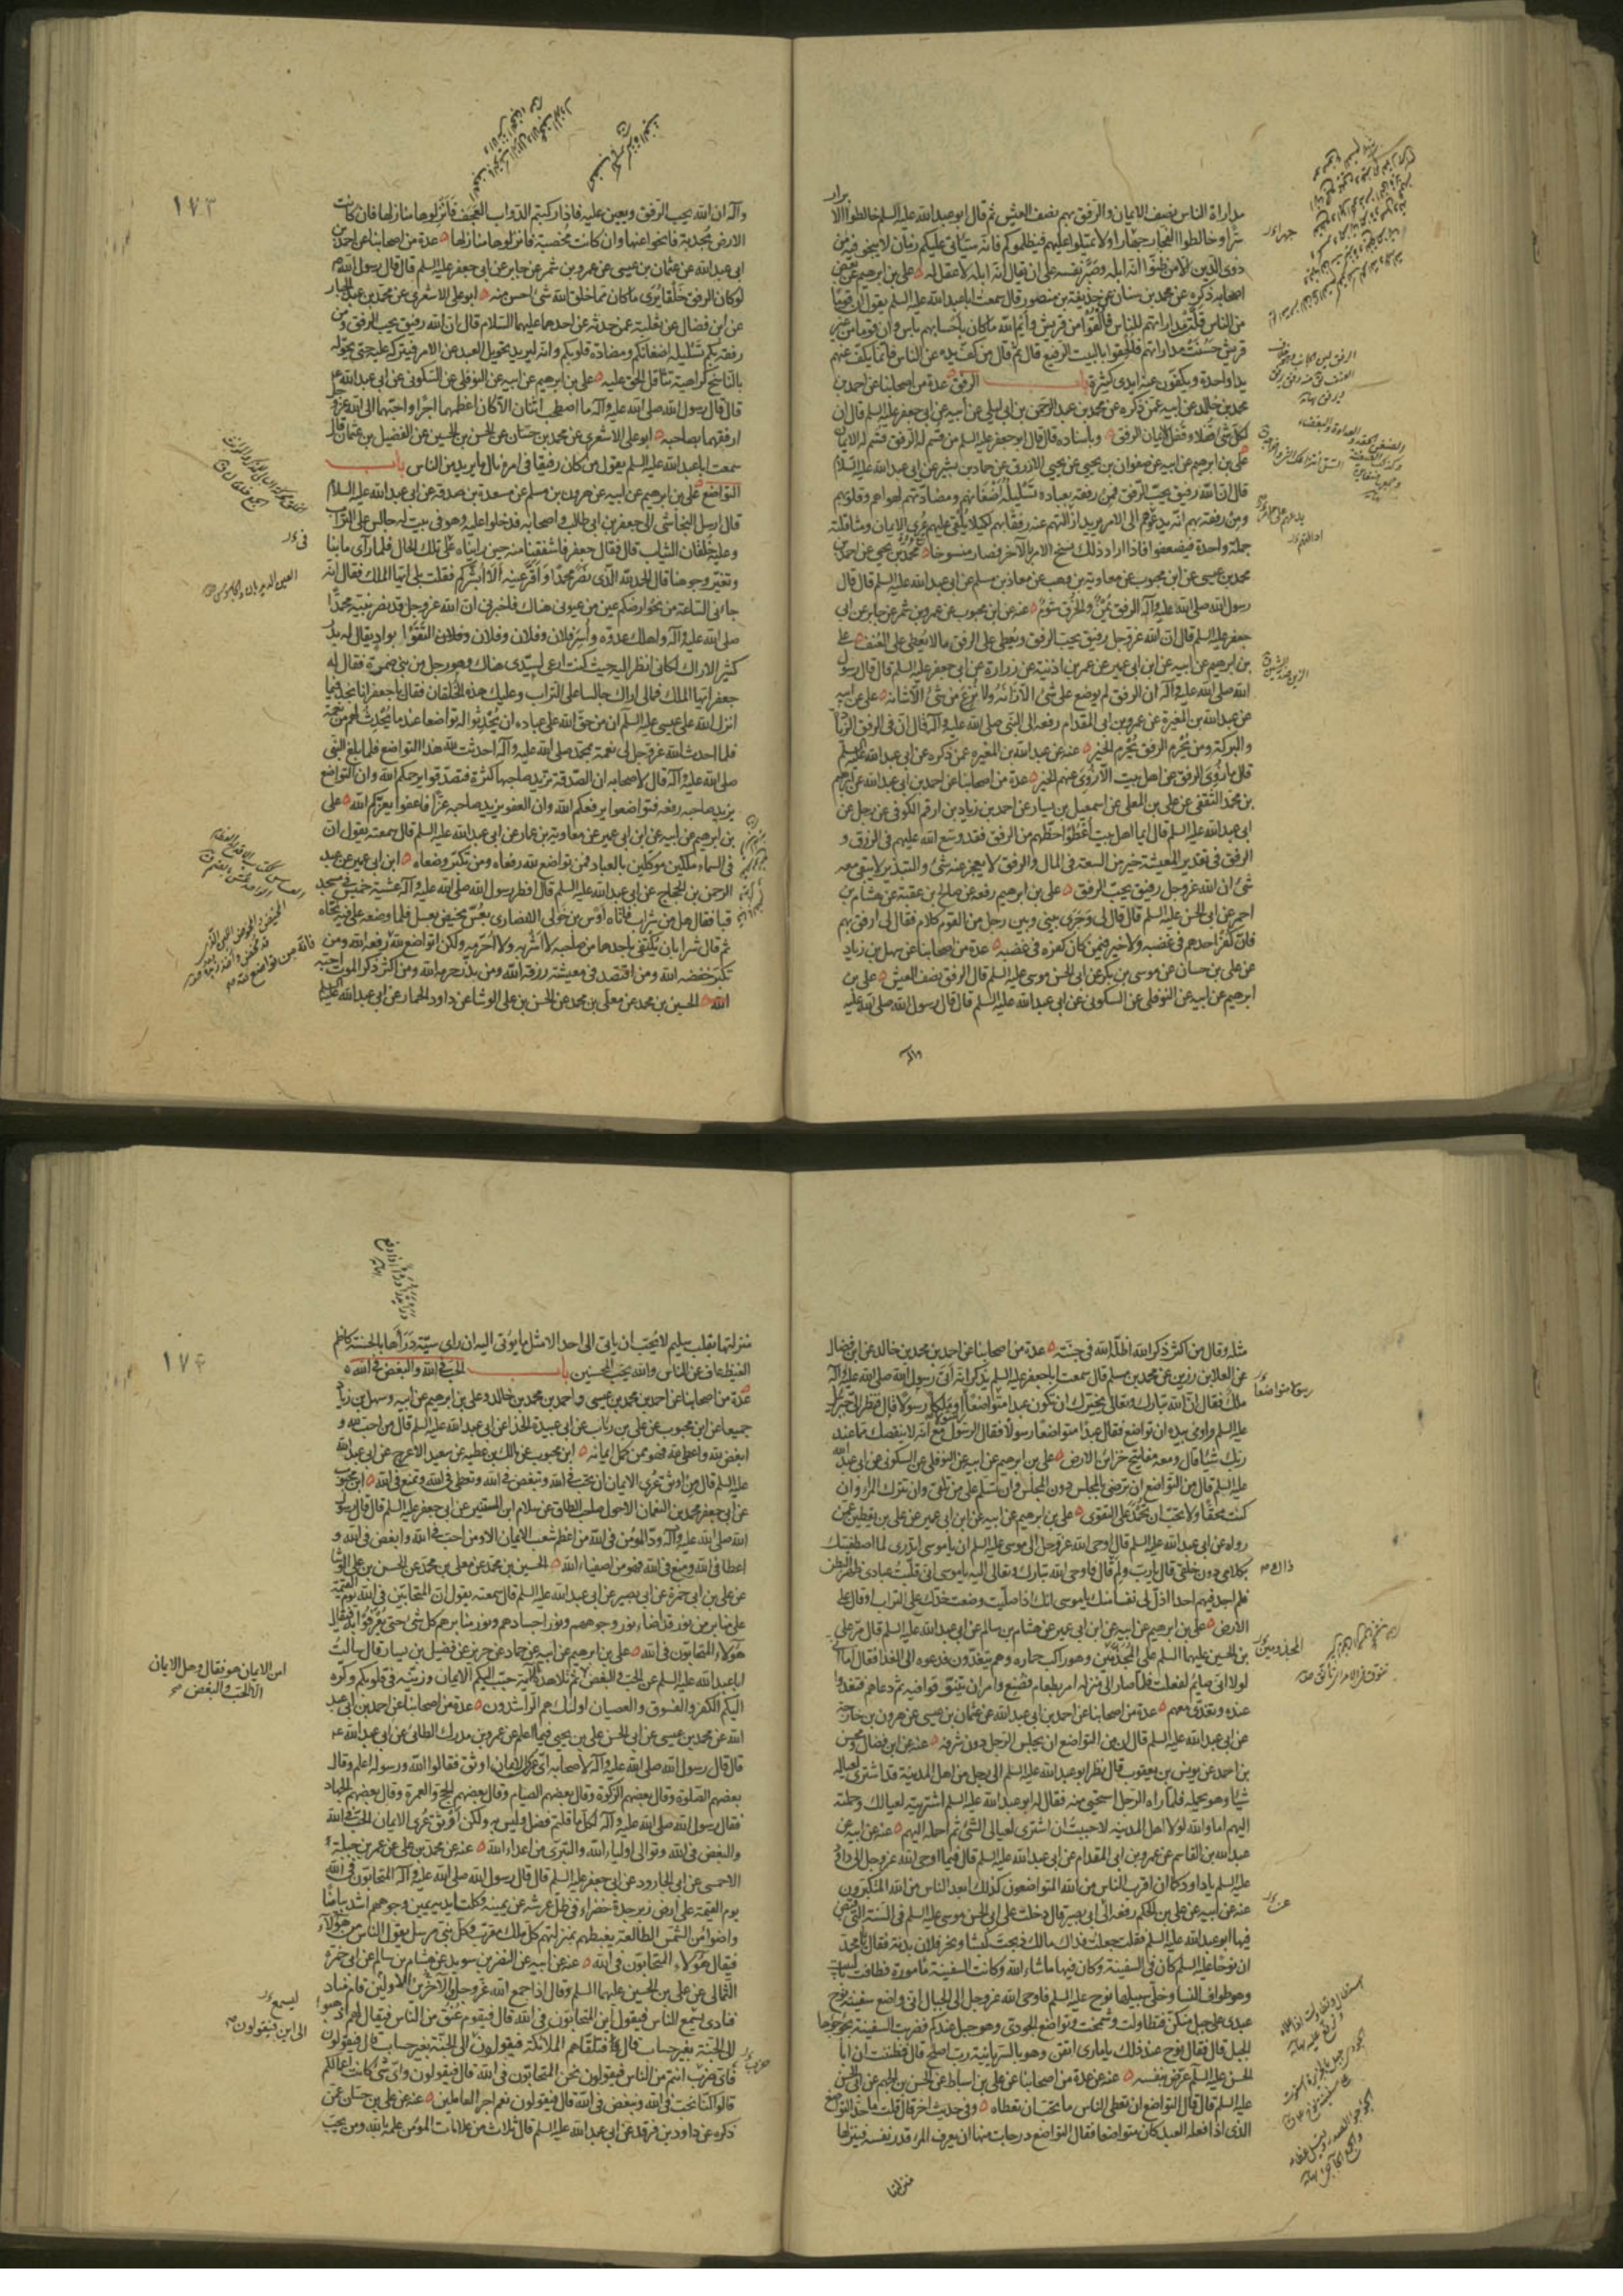 مداراة الناس نصف الايمان والرفق بهم نصف العيش ثم قال ابو عبد الله عليه السلم خالطوا الا
برار
سرا وخالطوا الفجار جهارا ولا تميلوا عليهم فيظلموكم فانه سياتي عليكم زمان لا ينجو فيه من
ذوي الدين الا من ظنوا انه ابله وصبر نفسه على ان يقال انه ابله لا عقل له علي بن ابرهيم عن بعض
اصحابه ذكره عن محمد بن سنان عن حذيفة بن منصور قال سمعت ابا عبد الله عليه السلم يقول ان قوما
من الناس قلت مداراتهم للناس فالقوا من قريش وايم الله ما كان باحسابهم باس وان قوما من غير
قريش حسنت مداراتهم فالحقوا بالبيت الرفيع قال ثم قال من كف يده عن الناس فانما يكف عنهم
يدا واحدة ويكفون عنه ايدي كثيرة باب الرفق عدة من اصحابنا عن احمد بن
محمد بن خالد عن ابيه عمن ذكره عن محمد بن عبد الرحمن بن ابي ليلى عن ابيه عن ابي جعفر عليه السلم قال ان
لكل شيء قفلا وقفل الايمان الرفق وباسناده قال قال ابو جعفر عليه السلم من قسم له الرفق قسم له الايمان
علي بن ابرهيم عن ابيه عن صفوان بن يحيى عن يحيى الازرق عن حماد بن بشير عن ابي عبد الله عليه السلام
قال ان الله رفيق يحب الرفق فمن رفقه بعباده تسليله اضغانهم ومضادتهم لهواهم وقلوبهم
ومن رفقه بهم انه يدعهم على الامر يريد ازالتهم عنه رفقا بهم لكيلا يلقي عليهم عرى الايمان ومثاقلته
جملة واحدة فيضعفوا فاذا اراد ذلك نسخ الامر بالآخر فصار منسوخا محمد بن يحيى عن احمد بن
محمد بن عيسى عن ابن محبوب عن معاوية بن وهب عن معاذ بن مسلم عن ابي عبد الله عليه السلم قال قال
رسول الله صلى الله عليه وآله الرفق يمن والخرق شوم عنه عن ابن محبوب عن عمرو بن شمر عن جابر عن ابي
جعفر عليه السلم قال ان الله عز وجل رفيق يحب الرفق ويعطي على الرفق ما لا يعطي على العنف علي
بن ابرهيم عن ابيه عن ابن ابي عمير عن عمر بن اذينة عن زرارة عن ابي جعفر عليه السلم قال قال رسول
الله صلى الله عليه وآله ان الرفق لم يوضع على شيء الا زانه ولا نزع من شيء الا شانه علي عن ابيه
عن عبد الله بن المغيرة عن عمرو بن ابي المقدام رفعه الى النبي صلى الله عليه وآله قال ان في الرفق الزيادة
والبركة ومن يحرم الرفق يحرم الخير عنه عن عبد الله بن المغيرة عمن ذكره عن ابي عبد الله عليه السلم
قال ما زوي الرفق عن اهل بيت الا زوي عنهم الخير عدة من اصحابنا عن احمد بن ابي عبد الله عن ابرهيم
بن محمد الثقفي عن علي بن المعلى عن اسمعيل بن يسار عن احمد بن زياد بن ارقم الكوفي عن رجل عن
ابي عبد الله عليه السلم قال ايما اهل بيت اعطوا حظهم من الرفق فقد وسع الله عليهم في الرزق و
الرفق في تقدير المعيشة خير من السعة في المال والرفق لا يعجز عنه شيء والتبذير لا يبقى معه
شيء ان الله عز وجل رفيق يحب الرفق علي بن ابرهيم رفعه عن صالح بن عقبة عن هشام بن
احمر عن ابي الحسن عليه السلم قال قال لي وجرى بيني وبين رجل من القوم كلام فقال لي ارفق بهم
فان كفر احدهم في غضبه ولا خير فيمن كان كفره في غضبه عدة من اصحابنا عن سهل بن زياد
عن علي بن حسان عن موسى بن بكر عن ابي الحسن موسى عليه السلم قال الرفق نصف العيش علي بن
ابرهيم عن ابيه عن النوفلي عن السكوني عن ابي عبد الله عليه السلم قال قال رسول الله صلى الله عليه
وآله
١٧٣
وآله ان الله يحب الرفق ويعين عليه فاذا ركبتم الدواب العجف فانزلوها منازلها فان كانت
الارض مجدبة فانجوا عنها وان كانت مخصبة فانزلوها منازلها عدة من اصحابنا عن احمد بن
ابي عبد الله عن عثمان بن عيسى عن عمرو بن شمر عن جابر عن ابي جعفر عليه السلم قال قال رسول الله ص
لو كان الرفق خلقا يرى ما كان مما خلق الله شيء احسن منه ابو علي الاشعري عن محمد بن عبد الجبار
عن ابن فضال عن ثعلبة عمن حدثه عن احدهما عليهما السلام قال ان الله رفيق يحب الرفق ومن
رفقه بكم تسليله اضغانكم ومضادة قلوبكم وانه ليريد تحويل العبد عن الامر فيتركه عليه حتى يحوله
بالناسخ كراهية تثاقل الحق عليه علي بن ابرهيم عن ابيه عن النوفلي عن السكوني عن ابي عبد الله ع
قال قال رسول الله صلى الله عليه وآله ما اصطحب اثنان الا كان اعظمهما اجرا واحبهما الى الله عز وجل
ارفقهما بصاحبه ابو علي الاشعري عن محمد بن حسان عن الحسن بن الحسين عن الفضيل بن عثمان قال
سمعت ابا عبد الله عليه السلم يقول من كان رفيقا في امره نال ما يريد من الناس باب
التواضع علي بن ابرهيم عن ابيه عن هرون بن مسلم عن مسعدة بن صدقة عن ابي عبد الله عليه السلام
قال ارسل النجاشي الى جعفر بن ابي طالب واصحابه فدخلوا عليه وهو في بيت له جالس على التراب
وعليه خلقان الثياب قال فقال جعفر فاشفقنا منه حين رايناه على تلك الحال فلما راى ما بنا
وتغير وجوهنا قال الحمد لله الذي نصر محمدا واقر عينه الا ابشركم فقلت بلى ايها الملك فقال انه
جاءني الساعة من نحو ارضكم عين من عيوني هناك فاخبرني ان الله عز وجل قد نصر نبيه محمدا
صلى الله عليه وآله واهلك عدوه واسر فلان وفلان وفلان وفلان التقوا بواد يقال له بدر
كثير الاراك لكاني انظر اليه حيث كنت ارعى لسيدي هناك وهو رجل من بني ضمرة فقال له
جعفر ايها الملك فما لي اراك جالسا على التراب وعليك هذه الخلقان فقال يا جعفر انا نجد فيما
انزل الله على عيسى عليه السلم ان من حق الله على عباده ان يحدثوا له تواضعا عند ما يحدث لهم من نعمة
فلما احدث الله عز وجل لي نعمة بمحمد صلى الله عليه وآله احدثت لله هذا التواضع فلما بلغ النبي
صلى الله عليه وآله قال لاصحابه ان الصدقة تزيد صاحبها كثرة فتصدقوا يرحمكم الله وان التواضع
يزيد صاحبه رفعة فتواضعوا يرفعكم الله وان العفو يزيد صاحبه عزا فاعفوا يعزكم الله علي
بن ابرهيم عن ابيه عن ابن ابي عمير عن معاوية بن عمار عن ابي عبد الله عليه السلم قال سمعته يقول ان
في السماء ملكين موكلين بالعباد فمن تواضع لله رفعاه ومن تكبر وضعاه ابن ابي عمير عن عبد
الرحمن بن الحجاج عن ابي عبد الله عليه السلم قال افطر رسول الله صلى الله عليه وآله عشية خميس في مسجد
قبا فقال هل من شراب فاتاه اوس بن خولي الانصاري بعس مخيض بعسل فلما وضعه على فيه نحاه
ثم قال شرابان يكتفى باحدهما من صاحبه لا اشربه ولا احرمه ولكن اتواضع لله رفعه الله ومن
تكبر خفضه الله ومن اقتصد في معيشته رزقه الله ومن بذر حرمه الله ومن اكثر ذكر الموت احبه
الله الحسين بن محمد عن معلى بن محمد عن الحسن بن علي الوشا عن داود الحمار عن ابي عبد الله عليه السلم
فانه من تواضع لله
مثله وقال من اكثر ذكر الله اظله الله في جنته عدة من اصحابنا عن احمد بن محمد بن خالد عن ابن فضال
عن العلا بن رزين عن محمد بن مسلم قال سمعت ابا جعفر عليه السلم يذكر انه اتى رسول الله صلى الله عليه وآله
ملك فقال ان الله تبارك وتعالى يخيرك ان تكون عبدا متواضعا او ملكا رسولا قال فنظر الى جبرئيل
رسولا متواضعا
عليه السلم واومى بيده ان تواضع فقال عبدا متواضعا رسولا فقال الرسول مع انه لا ينقصك مما عند
ربك شيئا قال ومعه مفاتيح خزائن الارض علي بن ابرهيم عن ابيه عن النوفلي عن السكوني عن ابي عبد الله
عليه السلم قال من التواضع ان ترضى بالمجلس دون المجلس وان تسلم على من تلقى وان تترك المراء وان
كنت محقا ولا تحب ان تحمد على التقوى علي بن ابرهيم عن ابيه عن ابن ابي عمير عن علي بن يقطين عمن
رواه عن ابي عبد الله عليه السلم قال اوحى الله عز وجل الى موسى عليه السلم ان يا موسى اتدري لما اصطفيتك
بكلامي دون خلقي قال يا رب ولم قال فاوحى الله تبارك وتعالى اليه يا موسى اني قلبت عبادي ظهر البطن
فلم اجد فيهم احدا اذل لي نفسا منك يا موسى انك اذا صليت وضعت خدك على التراب او قال على
الارض علي بن ابرهيم عن ابيه عن ابن ابي عمير عن هشام بن سالم عن ابي عبد الله عليه السلم قال مر علي
بن الحسين عليهما السلم على المجذمين وهو راكب حماره وهم يتغدون فدعوه الى الغدا فقال اما
المجذومين
لولا اني صايم لفعلت فلما صار الى منزله امر بطعام فصنع وامر ان يتنوقوا فيه ثم دعاهم فتغدوا
عنده وتغدى معهم عدة من اصحابنا عن احمد بن ابي عبد الله عن عثمان بن عيسى عن هرون بن خارجة
عن ابي عبد الله عليه السلم قال ان من التواضع ان يجلس الرجل دون شرفه عنه عن ابن فضال ومحسن
بن احمد عن يونس بن يعقوب قال نظر ابو عبد الله عليه السلم الى رجل من اهل المدينة قد اشترى لعياله
شيئا وهو يحمله فلما راه الرجل استحيى منه فقال له ابو عبد الله عليه السلم اشتريته لعيالك وحملته
اليهم اما والله لولا اهل المدينة لاحببت ان اشتري لعيالي الشيء ثم احمله اليهم عنه عن ابيه عن
عبد الله بن القاسم عن عمرو بن ابي المقدام عن ابي عبد الله عليه السلم قال فيما اوحى الله عز وجل الى داود
عليه السلم يا داود كما ان اقرب الناس من الله المتواضعون كذلك ابعد الناس من الله المتكبرون
عنه عن ابيه عن علي بن الحكم رفعه الى ابي بصير قال دخلت على ابي الحسن موسى عليه السلم في السنة التي قبض
فيها ابو عبد الله عليه السلم فقلت جعلت فداك مالك ذبحت كبشا ونحر فلان بدنة فقال يا با محمد
ان نوحا عليه السلم كان في السفينة وكان فيها ما شاء الله وكانت السفينة مامورة فطافت بالبيت
وهو طواف النسا وخلى سبيلها نوح عليه السلم فاوحى الله عز وجل الى الجبال اني واضع سفينة نوح
عبدي على جبل منكن فتطاولت وشمخت وتواضع الجودي وهو جبل عندكم فضربت السفينة بجوجوها
الجبل قال فقال نوح عند ذلك يا ماري اتقن وهو بالسريانية رب اصلح قال فظننت ان ابا
الحسن عليه السلم عرض بنفسه عنه عن عدة من اصحابنا عن علي بن اسباط عن الحسن بن الجهم عن ابي الحسن
عليه السلم قال قال التواضع ان تعطي الناس ما تحب ان تعطاه وفي حديث اخر قال قلت ما حد التواضع
الذي اذا فعله العبد كان متواضعا فقال التواضع درجات منها ان يعرف المرء قدر نفسه فينزلها
منزلتها
١٧٤
منزلتها بقلب سليم لا يحب ان ياتي الى احد الا مثل ما يؤتى اليه ان راى سيئة دراها بالحسنة كاظم
الغيظ عاف عن الناس والله يحب المحسنين باب الحب في الله والبغض في الله
عدة من اصحابنا عن احمد بن محمد بن عيسى واحمد بن محمد بن خالد وعلي بن ابرهيم عن ابيه وسهل بن زياد
جميعا عن ابن محبوب عن علي بن رئاب عن ابي عبيدة الحذا عن ابي عبد الله عليه السلم قال من احب لله و
ابغض لله واعطى لله فهو ممن كمل ايمانه ابن محبوب عن مالك بن عطية عن سعيد الاعرج عن ابي عبد الله
عليه السلم قال من اوثق عرى الايمان ان تحب في الله وتبغض في الله وتعطي في الله وتمنع في الله ابن محبوب
عن ابي جعفر محمد بن النعمان الاحول صاحب الطاق عن سلام ابن المستنير عن ابي جعفر عليه السلم قال قال رسول
الله صلى الله عليه وآله ود المؤمن في الله من اعظم شعب الايمان الا ومن احب في الله وابغض في الله و
اعطا في الله ومنع في الله فهو من اصفياء الله الحسين بن محمد عن معلى بن محمد عن الحسن بن علي الوشا
عن علي بن ابي حمزة عن ابي بصير عن ابي عبد الله عليه السلم قال سمعته يقول ان المتحابين في الله يوم القيمة
على منابر من نور قد اضاء نور وجوههم ونور اجسادهم ونور منابرهم كل شيء حتى يعرفوا به فيقال
هؤلاء المتحابون في الله علي بن ابرهيم عن ابيه عن حماد عن حريز عن فضيل بن يسار قال سالت
ابا عبد الله عليه السلم عن الحب والبغض ثم تلا هذه الآية حبب اليكم الايمان وزينه في قلوبكم وكره
امن الايمان هو فقال وهل الايمان
الا الحب والبغض صح
اليكم الكفر والفسوق والعصيان اولئك هم الراشدون عدة من اصحابنا عن احمد بن ابي عبد
الله عن محمد بن عيسى عن ابي الحسن علي بن يحيى فيما اعلم عن عمرو بن مدرك الطائي عن ابي عبد الله ع
قال قال رسول الله صلى الله عليه وآله لاصحابه اي عرى الايمان اوثق فقالوا الله ورسوله اعلم وقال
بعضهم الصلوة وقال بعضهم الزكوة وقال بعضهم الصيام وقال بعضهم الحج والعمرة وقال بعضهم الجهاد
فقال رسول الله صلى الله عليه وآله لكل ما قلتم فضل وليس به ولكن اوثق عرى الايمان الحب في الله
والبغض في الله وتوالي اولياء الله والتبري من اعداء الله عنه عن محمد بن علي عن عمر بن جبلة
الاحمسي عن ابي الجارود عن ابي جعفر عليه السلم قال قال رسول الله صلى الله عليه وآله المتحابون في الله
يوم القيمة على ارض زبرجدة خضراء في ظل عرشه عن يمينه وكلتا يديه يمين وجوههم اشد بياضا
واضوا من الشمس الطالعة يغبطهم بمنزلتهم كل ملك مقرب وكل نبي مرسل يقول الناس من هؤلاء
فيقال هؤلاء المتحابون في الله عنه عن ابيه عن النضر بن سويد عن هشام بن سالم عن ابي حمزة
الثمالي عن علي بن الحسين عليهما السلم وقال اذا جمع الله عز وجل الاولين والآخرين قام مناد
فنادى يسمع الناس فيقول اين المتحابون في الله قال فيقوم عنق من الناس فيقال لهم اذهبوا
ليسمع
الى الجنة بغير حساب قال فتلقاهم الملائكة فيقولون الى اين فيقولون الى الجنة بغير حساب قال فيقولون
فاي ضرب انتم من الناس فيقولون نحن المتحابون في الله قال فيقولون واي شيء كانت اعمالكم
قالوا كنا نحب في الله ونبغض في الله قال فيقولون نعم اجر العاملين عنه عن علي بن حسان عمن
ذكره عن داود بن فرقد عن ابي عبد الله عليه السلم قال ثلاث من علامات المؤمن علمه بالله ومن يحب